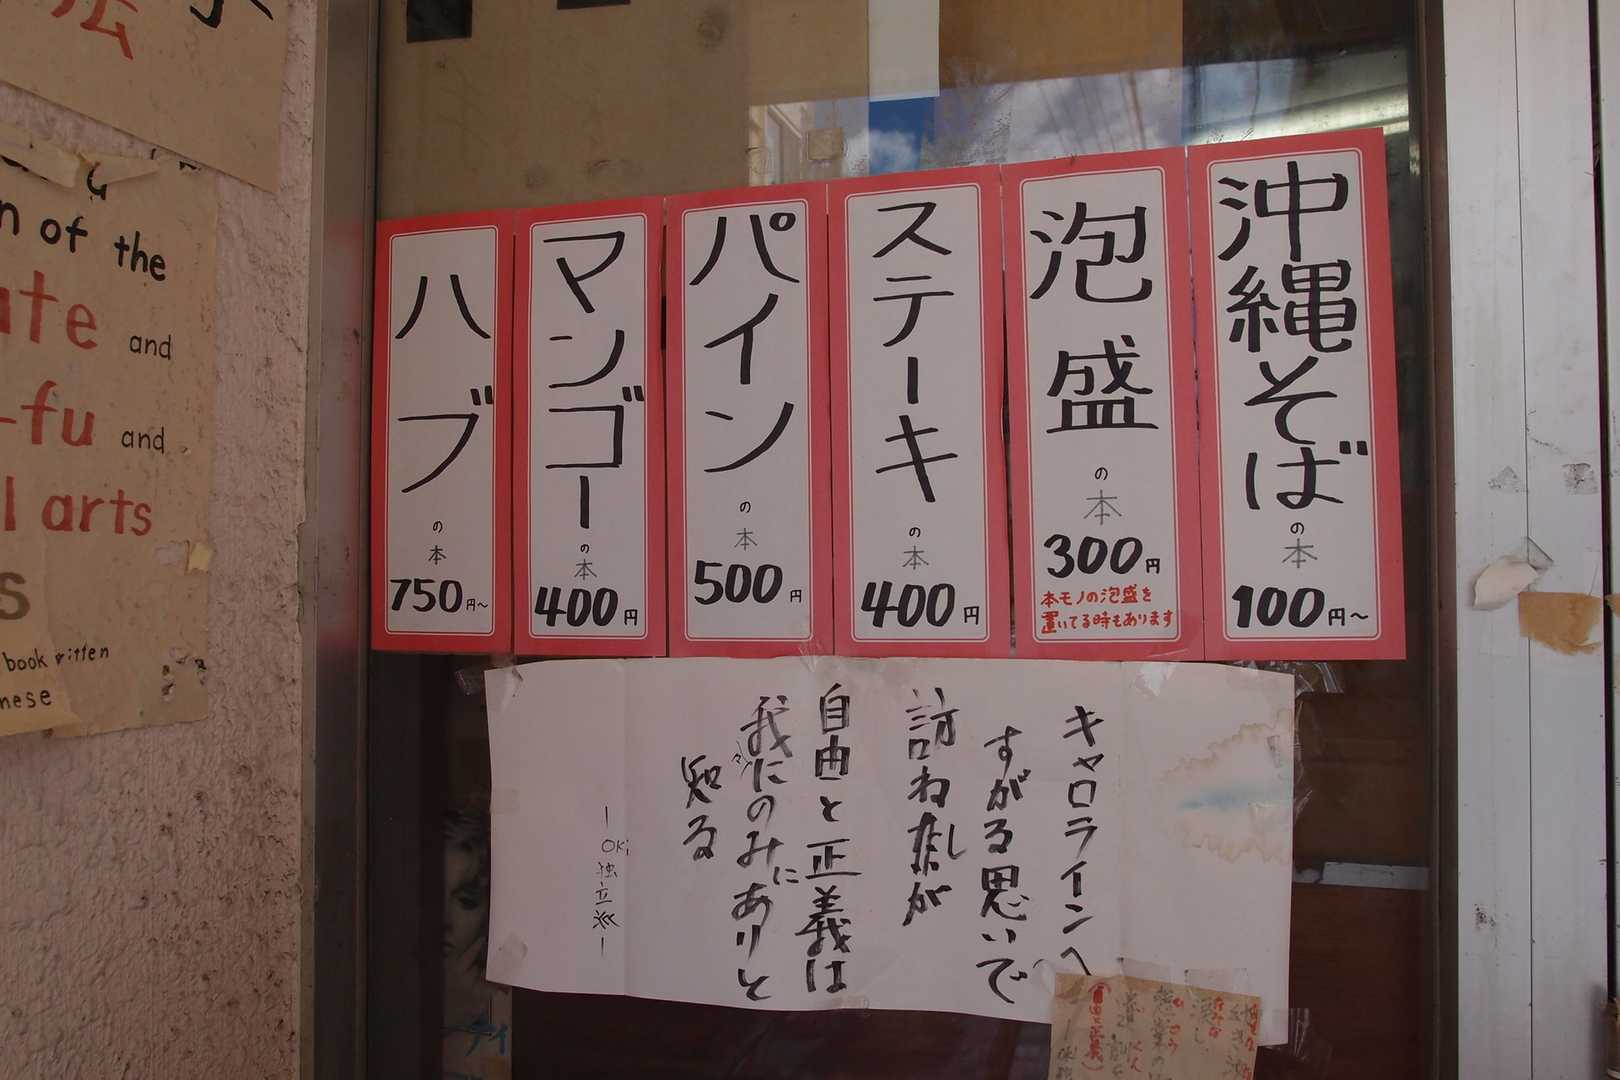 沖縄そば
の本
100円～
泡盛
の本
300円
本モノの泡盛を
置いてる時もあります
ステーキ
の本
400円
パイン
の本
500円
マンゴー
の本
400円
ハブ
の本
750円～
キャロラインへ
すがる思いで
訪ねしが
自由と正義は
我にのみにありと
知る
—OKi独立派—
n of the
ate and
-fu and
l arts
s
book written
nese